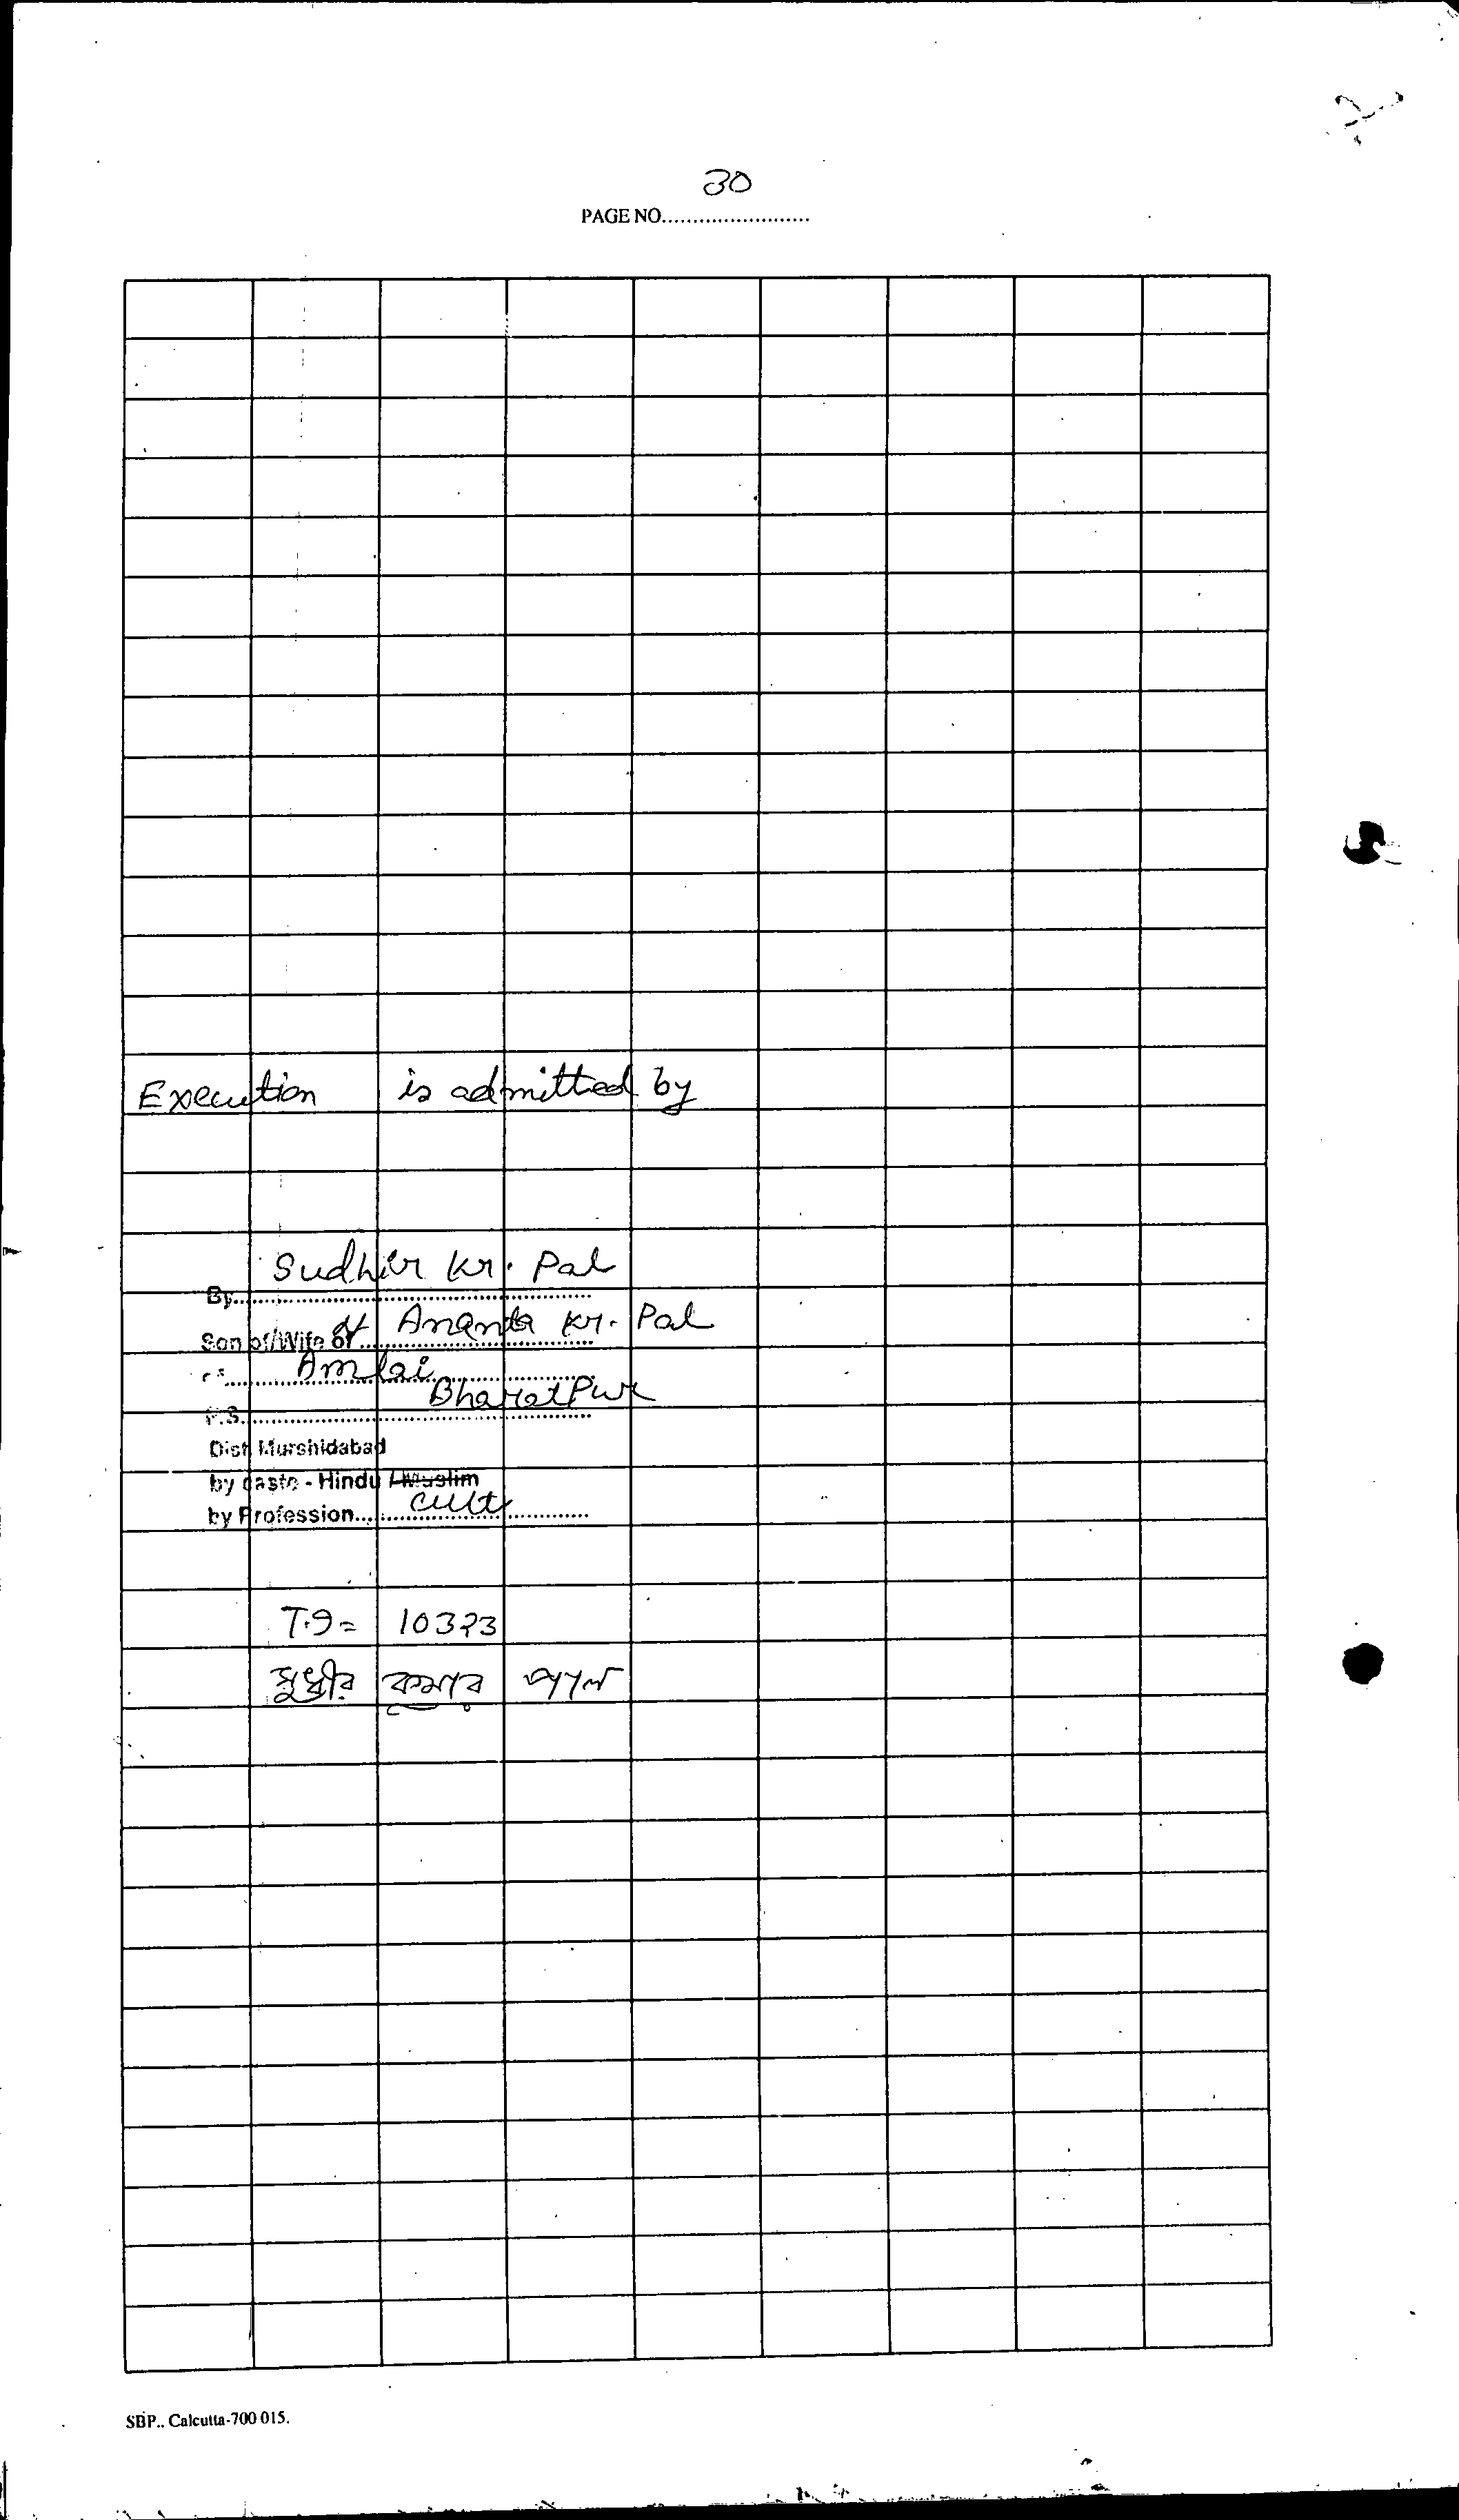 30
PAGE NO........................
Execution is admitted by
Sudhir Kr. Pal
By............................................................
Son of/Wife of Ananta Kr. Pal
Amlai
P.S. BharatPur
Dist Murshidabad
by caste - Hindu / Muslim
by Profession....... cult
T.I = 10323
সুধীর কুমার পাল
SBP.. Calcutta-700 015.